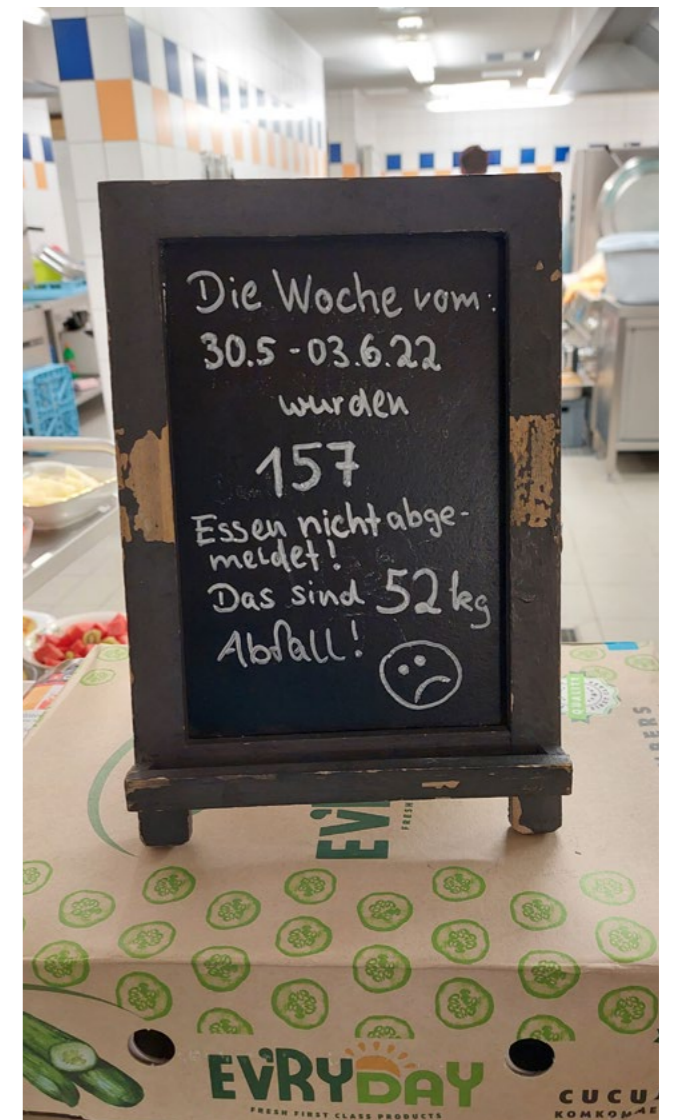 Die Woche vom:
30.5 - 03.6.22
wurden
157
Essen nicht abge-
meldet!
Das sind 52 kg
Abfall!
QUALITY
EVRYDAY
FRESH FIRST CLASS PRODUCTS